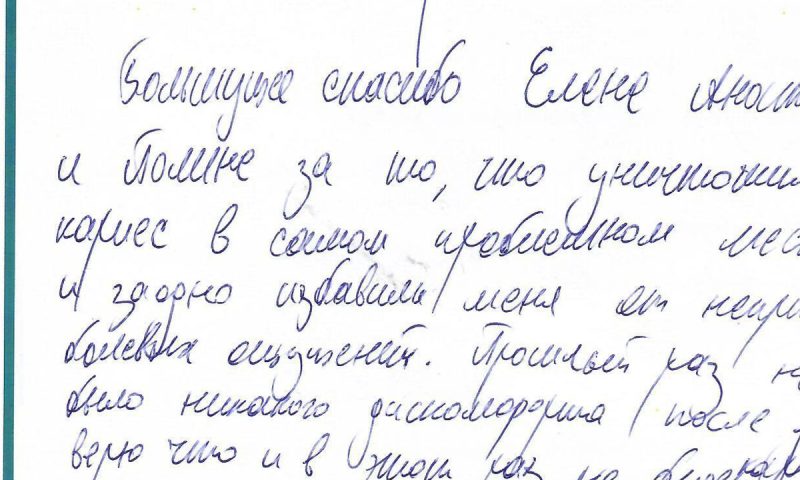 Большущее спасибо Елене Анат
и Полине за то, что уничтожил
кариес в самом проблемном мес
и заодно избавили меня от непри
болевых ощущений. Прошлый раз н
было никакого дискомфорта после
верю что и в этот раз не